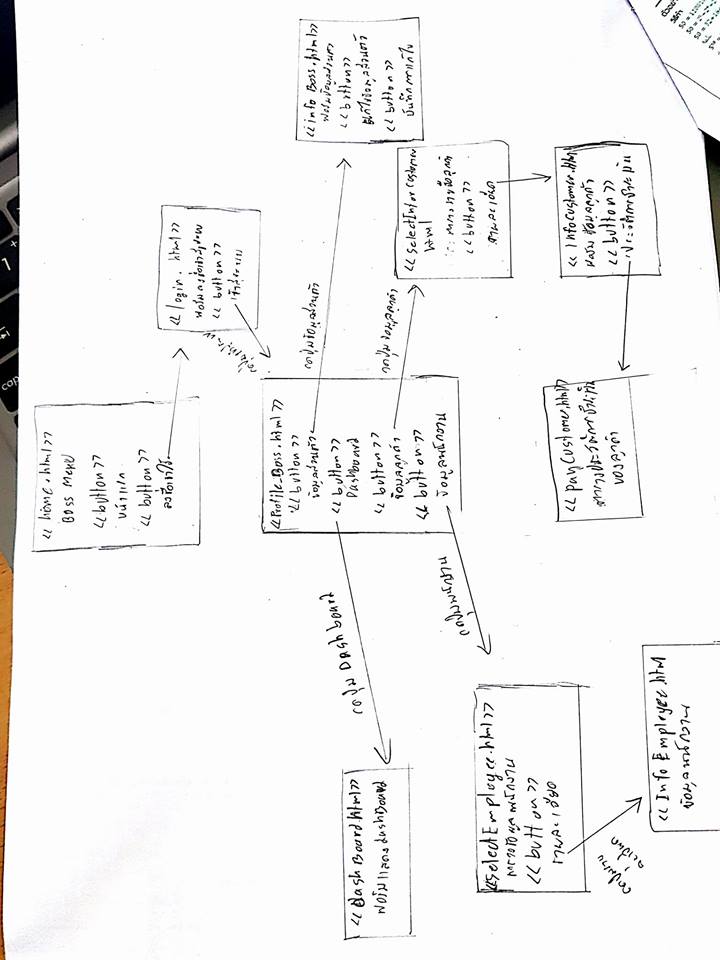 << home.html >>
Boss Menu
<< button >>
หน้าแรก
<< button >>
ลงชื่อเข้าใช้
<< login. html >>
ฟอร์มลงชื่อเข้าสู่ระบบ
<< button >>
เข้าสู่ระบบ
กดปุ่มเข้าสู่ระบบ
<<Profile_Boss.html >>
<< button >>
ข้อมูลส่วนตัว
<< button >>
Dashboard
<< button >>
ข้อมูลลูกค้า
<< button >>
ข้อมูลพนักงาน
กดปุ่มข้อมูลส่วนตัว
<< info Boss.html >>
ฟอร์มข้อมูลส่วนตัว
<< button >>
แก้ไขข้อมูลส่วนตัว
<< button >>
บันทึกการแก้ไข
กดปุ่ม Dashboard
<< dash Board.html >>
ฟอร์มแสดง dashBoard
กดปุ่ม ข้อมูลลูกค้า
<< selectInforcustomer
html
ตารางรายชื่อลูกค้า
<< button >>
รายละเอียด
กดปุ่มพนักงาน
<<selectEmployee.html >>
ตารางข้อมูลพนักงาน
<< button >>
รายละเอียด
<< payCustomer.html >>
ตารางประวัติการชำระเงิน
ของลูกค้า
<< InfoCustomer.html
ฟอร์ม ข้อมูลลูกค้า
<< button >>
ประวัติการชำระเงิน
กดปุ่มราย
ละเอียด
<< Info Employee.html
ข้อมูลพนักงาน